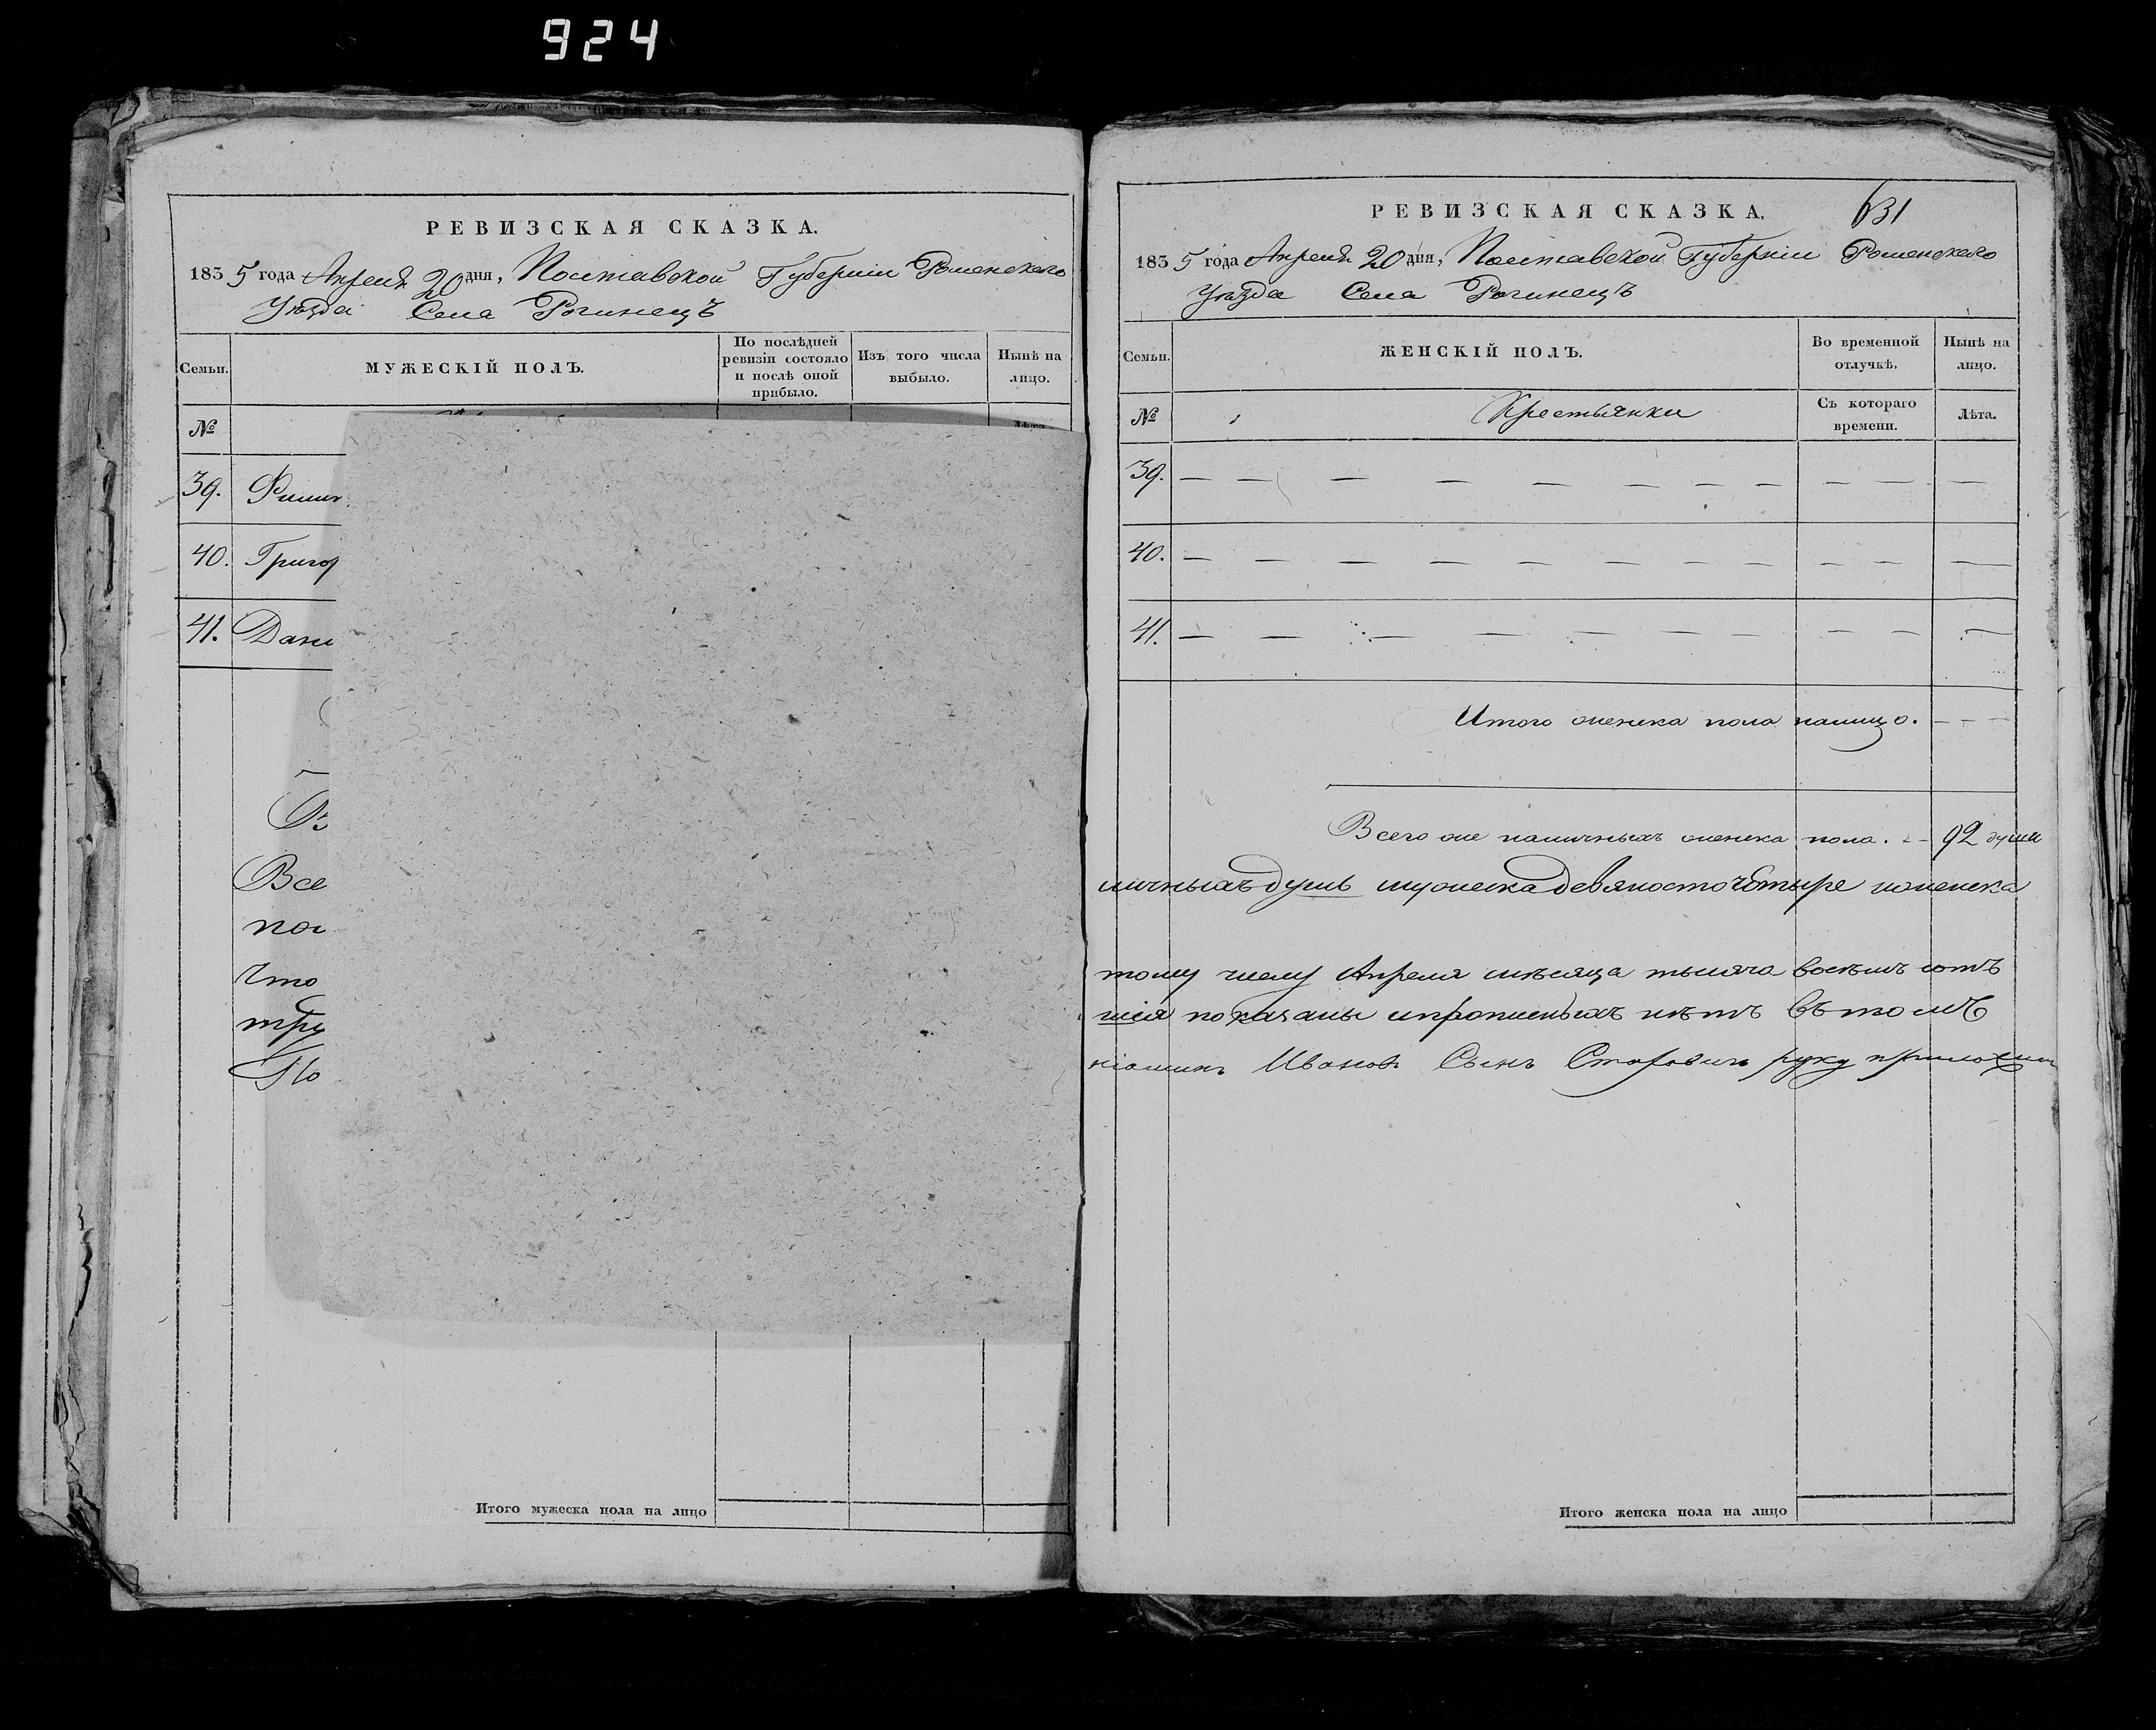 924
РЕВИЗСКАЯ СКАЗКА.
1835 года Апреля 20 дня, Полтавской Губернии Роменского
Уезда Села Рогинецъ
Семьи.
МУЖЕСКІЙ ПОЛЪ.
По послѣдней ревизіи состояло и послѣ оной прибыло.
Изъ того числа выбыло.
Нынѣ на лицо.
№
39. Филип
40. Григор
41. Дани
Все
пол
что
тру
По
Итого мужеска пола на лицо
РЕВИЗСКАЯ СКАЗКА. 631
1835 года Апреля 20 дня, Полтавской Губерніи Роменского
Уезда Села Рогинецъ
Семьи.
ЖЕНСКІЙ ПОЛЪ.
Во временной отлучкѣ.
Нынѣ на лицо.
№
Крестьянки
Съ котораго времени.
Лѣта.
39. — — — — — — — — — — —
40. — — — — — — — — — — —
41. — — — — — — — — — — —
Итого женска пола налицо. - - -
Всего же наличныхъ женска пола. - - 92 души
личныхъ душъ мужеска девяносто четыре иженска
тому числу Апреля мѣсяца тысяча восемъ сотъ
показаны ипрописныхъ нѣтъ въ томъ
Иванов Сынъ руку приложил
Итого женска пола на лицо